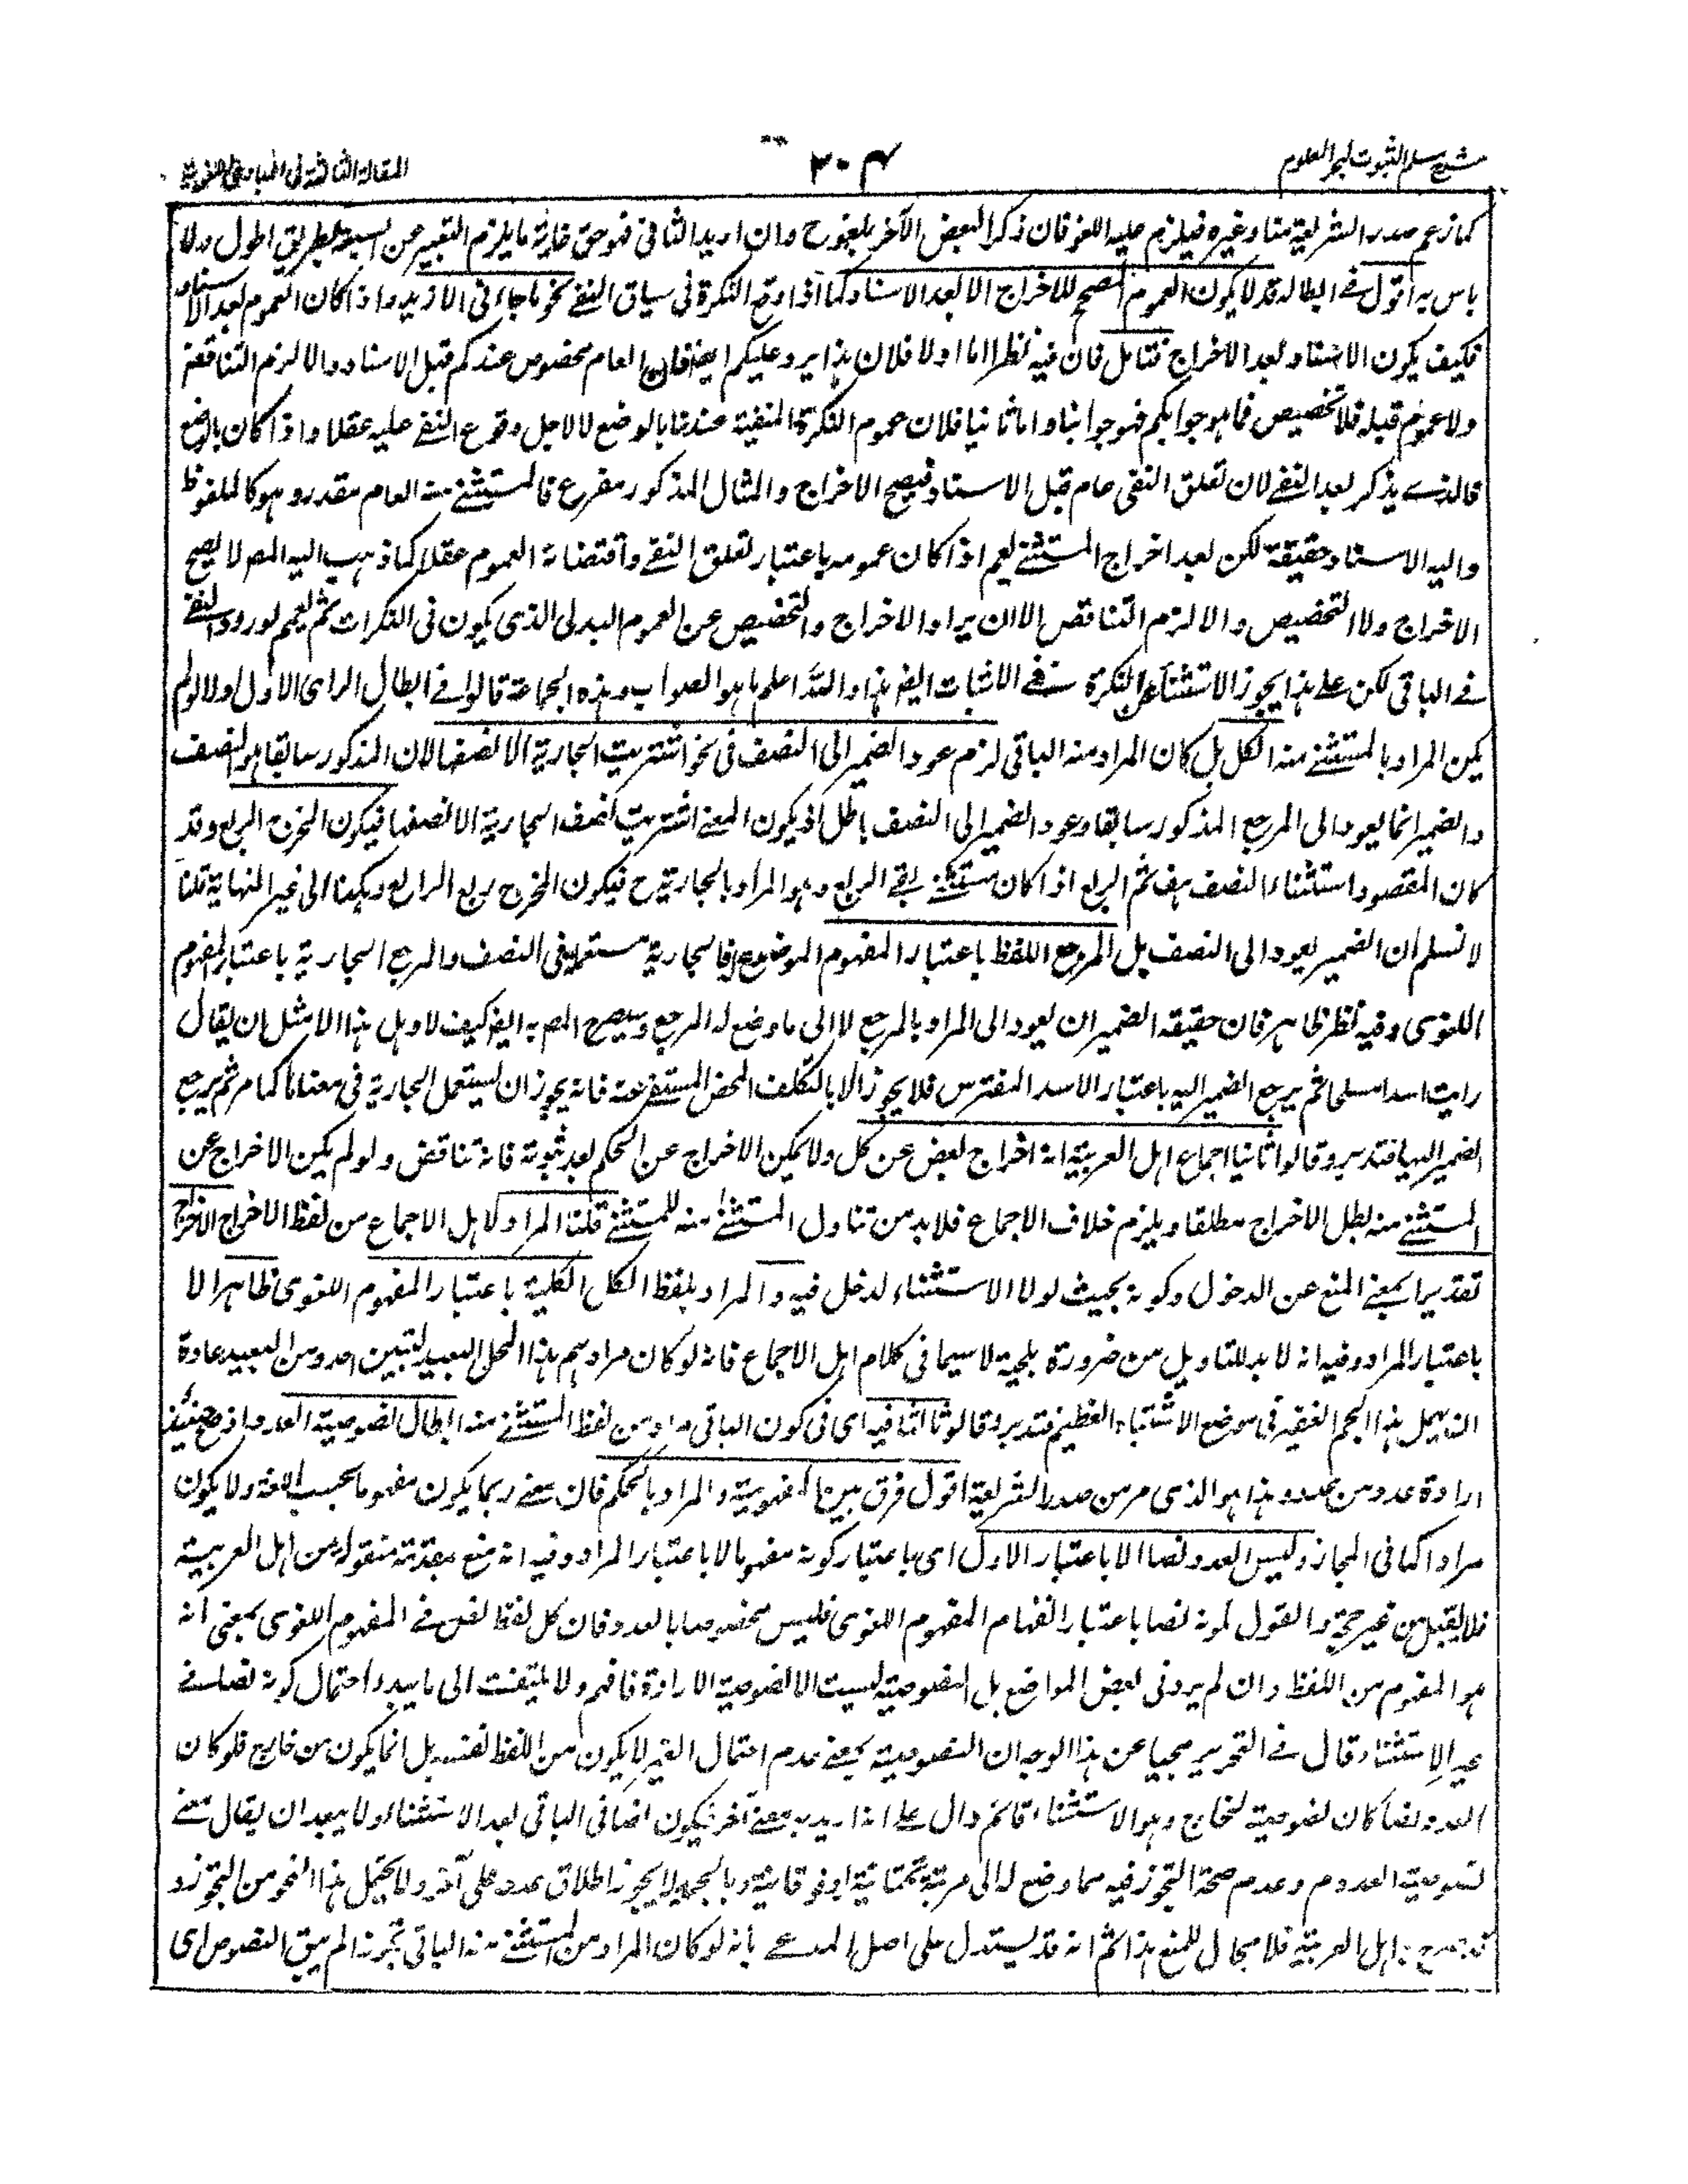 شرح مسلم الثبوت لبحر العلوم
٣٠٤
المقالة الثالثة فى المبادى اللغوية
كما زعم صدر الشريعة منا وغيره فيلزم عليه اللغو فان ذكر البعض الآخر يلغو ح وان اريد الثانى فهو حق غاية ما يلزم التعبير عن السبعة بطريق اطول ولا
باس به اقول فى ابطاله قد لا يكون العموم المصحح للاخراج الا بعد الاسناد كما اذا وقع النكرة فى سياق النفى نحو ما جاءنى الا زيد واذا كان العموم بعد الاسناد
فكيف يكون الاسناد بعد الاخراج فتامل فان فيه نظرا اما اولا فلان هذا يرد عليكم ايضا فان العام مخصوص عندكم قبل الاسناد والا لزم التناقض
ولا عموم قبله فلا تخصيص فما هو جوابكم فهو جوابنا واما ثانيا فلان عموم النكرة المنفية عندنا بالوضع لا لاجل وقوع النفى عليه عقلا واذا كان بالوضع
فالذى يذكر بعد النفى لان تعلق النفى عام قبل الاسناد فيصح الاخراج والمثال المذكور مفرع فالمستثنى منه العام مقدر وهو كالملفوظ
واليه الاسناد حقيقة لكن بعد اخراج المستثنى نعم اذا كان عمومه باعتبار تعلق النفى واقتضائه العموم عقلا كما ذهب اليه المص لا يصح
الاخراج ولا التخصيص والا لزم التناقض الا ان يراد الاخراج والتخصيص عن العموم البدلى الذى يكون فى النكرات ثم يعم لورود النفى
فى الباقى لكن على هذا يجوز الاستثناء عن النكرة فى الاثبات ايضا هذا والله اعلم بما هو الصواب وهذه الجماعة قالوا فى ابطال الراى الاول اولا لو لم
يكن المراد بالمستثنى منه الكل بل كان المراد منه الباقى لزم عود الضمير الى النصف فى نحو اشتريت الجارية الا نصفها لان المذكور سابقا هو النصف
والضمير انما يعود الى المرجع المذكور سابقا وعود الضمير الى النصف باطل اذ يكون المعنى اشتريت نصف الجارية الا نصفها فيكون المخرج الربع وقد
كان المقصود استثناء النصف هف ثم الربع اذا كان مستثنى بقى الربع وهو المراد بالجارية ح فيكون المخرج ربع الربع وهكذا الى غير النهاية قلنا
لا نسلم ان الضمير يعود الى النصف بل المرجع اللفظ باعتبار المفهوم الموضوع له فالجارية مستعملة فى النصف والمرجع الجارية باعتبار المفهوم
اللغوى وفيه نظر ظاهر فان حقيقة الضمير ان يعود الى المراد بالمرجع لا الى ما وضع له المرجع وسيصرح المص به ايضا كيف لا وهل هذا الا مثل ان يقال
رايت اسدا يصلى ثم يرجع الضمير اليه باعتبار الاسد المفترس فلا يجوز الا بالتكلف المحض المستغنى عنه فانه يجوز ان يستعمل الجارية فى معناها كما مر ثم يرجع
الضمير اليها فتدبر وقالوا ثانيا اجماع اهل العربية انه اخراج بعض عن كل ولا يمكن الاخراج عن الحكم بعد ثبوته فانه تناقض ولو لم يكن الاخراج عن
المستثنى منه بطل الاخراج مطلقا ويلزم خلاف الاجماع فلا بد من تناول المستثنى منه للمستثنى قلنا المراد لاهل الاجماع من لفظ الاخراج الاخراج
تقديرا بمعنى المنع عن الدخول وكونه بحيث لولا الاستثناء لدخل فيه والمراد بلفظ الكل الكلية باعتبار المفهوم اللغوى ظاهرا لا
باعتبار المراد وفيه انه لا بد للتاويل من ضرورة ملجية لا سيما فى كلام اهل الاجماع فانه لو كان مرادهم هذا المحل البعيد لتبين احد ومن البعيد عادة
ان يهمل هذا الجم الغفير فى موضع الاشتباه العظيم فتدبر وقالوا ثالثا فيه اى فى كون الباقى مراد من لفظ المستثنى منه ابطال نصوصية العدد اذ صح حينئذ
ارادة عدد من عدد وهذا هو الذى مر من صدر الشريعة اقول فرق بين المفهومية والمراد بالحكم فان معنى ربما يكون مفهوما بحسب اللغة ولا يكون
مرادا كما فى المجاز وليس العدد نصا الا باعتبار الاول اى باعتبار كونه مفهوما لا باعتبار المراد وفيه انه منع مقدمة منقولة من اهل العربية
فلا يقبل من غير حجة والقول بكونه نصا باعتبار انفهام المفهوم اللغوى فليس مخصوصا بالعدد فان كل لفظ نص فى المفهوم اللغوى بمعنى انه
هو المفهوم من اللفظ وان لم يرد فى بعض المواضع بل النصوصية ليست الا نصوصية الارادة فافهم ولا يلتفت الى ما يبدو احتمال كونه نصا فى
غير الاستثناء وقال فى التحرير مجيبا عن هذا الوجه ان النصوصية بمعنى عدم احتمال الغير لا يكون من اللفظ نفسه بل انما يكون من خارج فلو كان
العدد نصا كان نصوصية لخارج وهو الاستثناء قائم دال على انه اريد به معنى آخر فيكون نصا فى الباقى بعد الاستثناء ولا يبعد ان يقال معنى
نصوصية العدد وعدم صحة التجوز فيه مما وضع له الى مرتبة تحتانية او فوقانية وبالجملة لا يجوز اطلاق عدد على آخر ولا يحتمل هذا النحو من التجوز و
قد صرح به اهل العربية فلا مجال للمنع هذا ثم انه قد يستدل على اصل المدعى بانه لو كان المراد من المستثنى منه الباقى تجوزا لم يبق النصوص اى